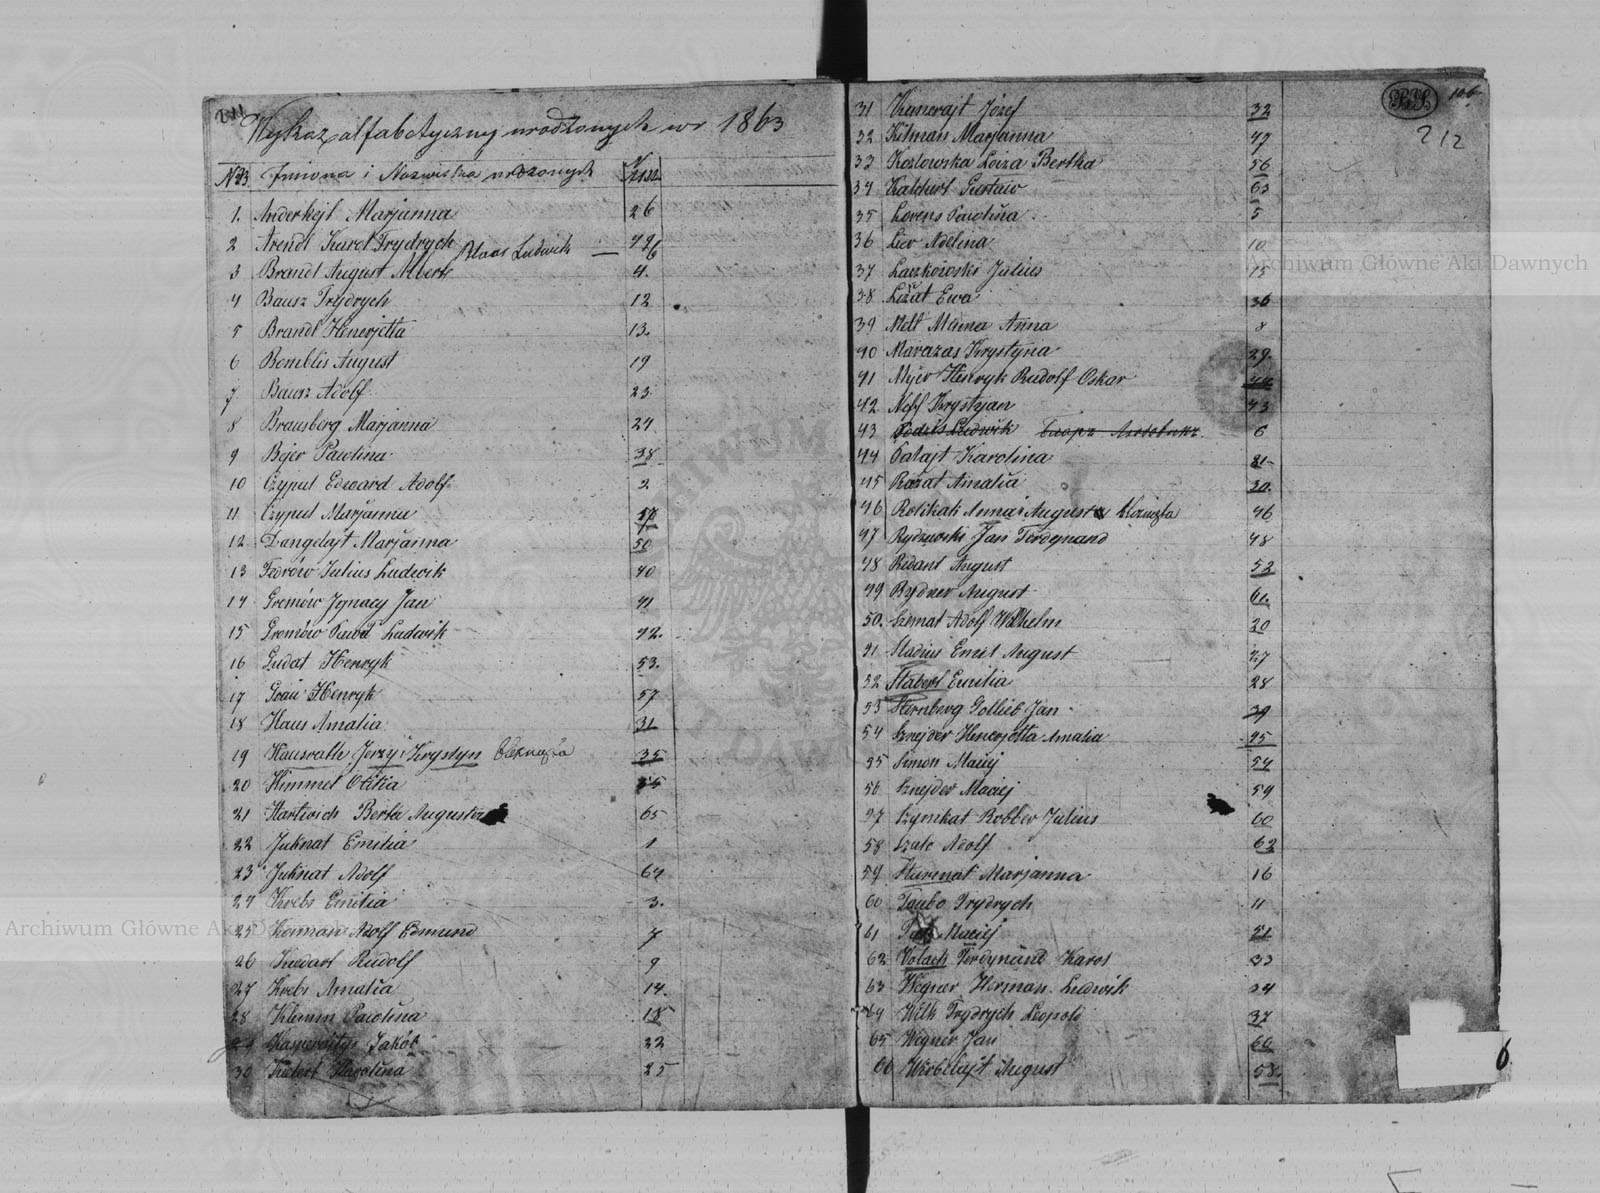 211
Wykaz alfabetyczny urodzonych w r 1863
Imiona i Nazwiska urodzonych
1. Anderhejt Marjanna 26
2 Arendt Karol Frydrych 49
Blaos Ludwik — 6
3 Brandt August Albert 4.
4 Bausz Frydrych 12
5 Brandt Henerjetta 13.
6 Bemblis August 19
7 Bausz Adolf 23
8 Brausberg Marjanna 24
9 Bejer Paulina 38
10 Czyput Edward Adolf 2
11 Czyput Marjanna
12 Dangelajt Marjanna 50
13 Fedrów Julius Ludwik 40
14 Gremów Ignacy Jan 41
15 Gremów Paweł Ludwik 42.
16 Gudat Henryk 53.
17 Grau Henryk 57
18 Haus Amalia 31
19 Hausrath Jerzy i Krystyn 35
20 Himmel Otilia 55
21 Hartwich Berta Augusta 65
22 Juknat Emilia 1
23 Juknat Adolf 64
24 Krebs Emilia 3.
25 Herman Adolf Edmund 7
26 Kudart Rudolf 9
27 Krebs Amalia 14.
28 Klemm Paulina 18
Jakób 22
30 Karolina 25
31 Kamerajt Józef 32
32 Kilman Marjanna 47
33 Kozlowska Loiza Bertha 56
34 Gustaw 63
35 Lorens Paulina 5
36 Adelina 10
37 Laczkowski Julius 15
38 Lizat Ewa 36
39 Melt Anna 8
40 Krystyna 29.
41 Mejer Henryk Rudolf Oskar 44
42 Neff Krystyan 43
43 Ludwik 6
44 Palajt Karolina 21
45 Razat Amalia 30.
46 Anna i Augusta 46
47 Rydzewski Jan Ferdynand 48
48 Ridant August 52
49 Rydner August 61.
50. Szmat Adolf Wilhelm 20
51 Stadius Emil August 27
52 Stabert Emilia 28
53 Sternberg Gotlieb Jan 39
54 Sznejder Henerjetta Amalia 45
55 Simon Maciej 54
56 Sznejder Maciej 59
57 Szymkat Robber Julius 60
58 Szulc Adolf 62
59 Sturmat Marjanna 16
60 Taubo Frydrych 11
61 Maciej 51
62 Volach Ferdynand Karol 33
63 Wegner Herman Ludwik 34
64 Wilk Frydrych Leopold 37
65 Wegner Jan 66
66 August 58.
212
B.S.
Archiwum Główne Akt Dawnych
Archiwum Główne Akt Dawnych